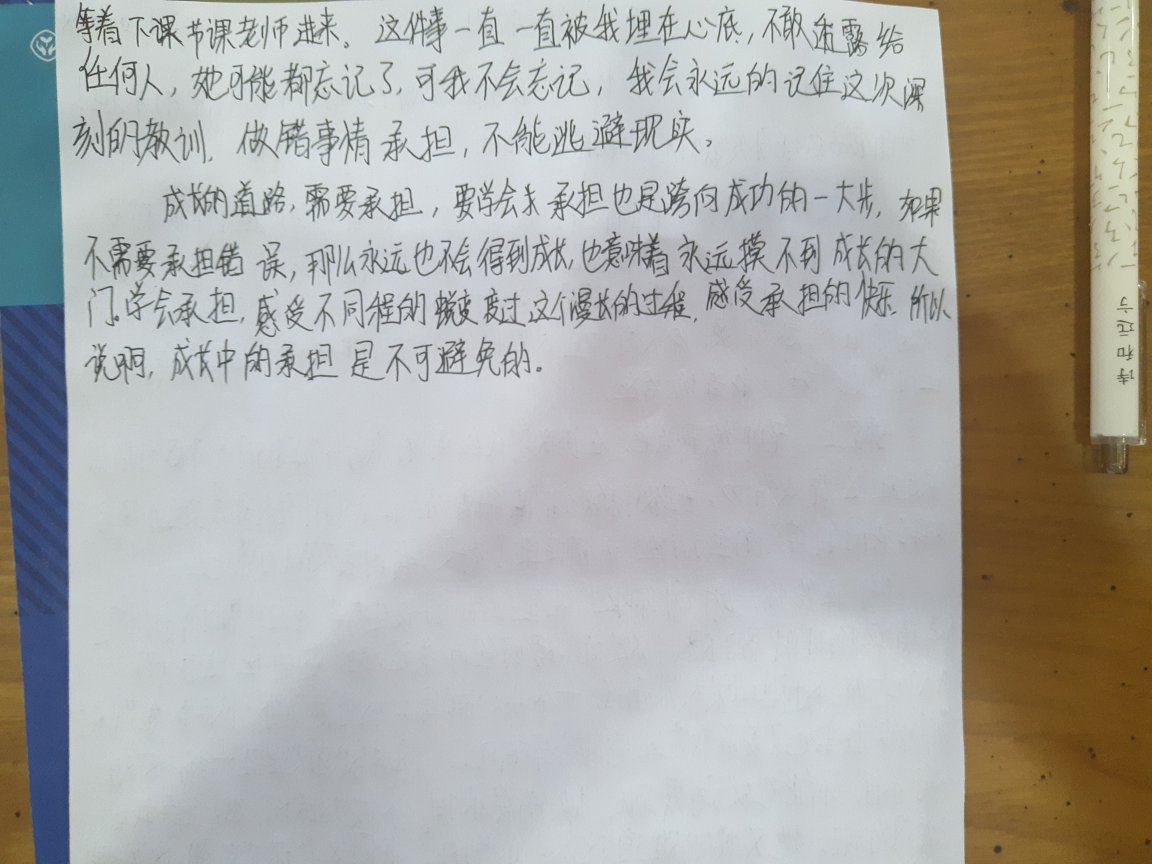 等着下课节课老师进来。这件事一直一直被我埋在心底，不敢透露给
任何人，她可能都忘记了，可我不会忘记，我会永远的记住这次深
刻的教训，做错事情承担，不能逃避现实。
成长的道路，需要承担，要学会承担也是跨向成功的一大步，如果
不需要承担错误，那么永远也不会得到成长，也意味着永远摸不到成长的大
门。学会承担，感受不同程的蜕变度过这个漫长的过程，感受承担的快乐，所以
说明，成长中的承担是不可避免的。
诗和远方